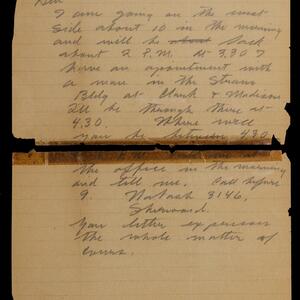 Ben
I am going on the west
side about 10 in the morning
and will be about back
about 2 P.M. At 3:30 I
have an appointment with
a man in the Straus
Bldg at Clark & Madison
I'll be through there at
4:30. Where will
you be between 4:30
the office in the morning
and tell me. Call before
9. Wabash 3146,
Sherwood.
Your letter expresses
the whole matter of